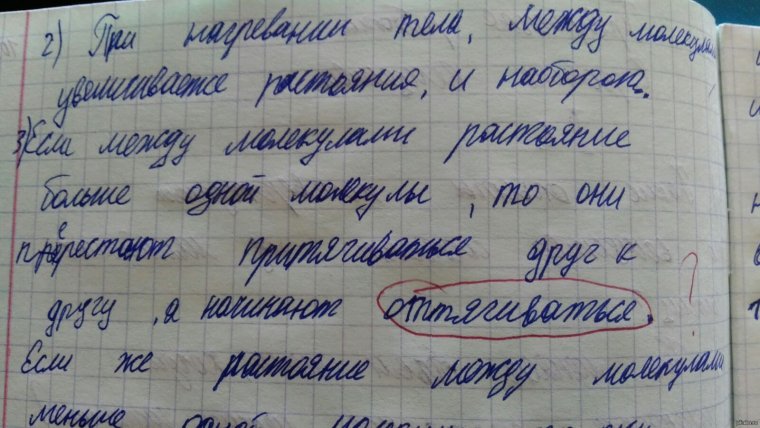 2) При нагревании тела, между молекулами
увеличивается растояния, и наоборот.
3) Если между молекулами растояние
больше одной молекулы, то они
перестают притячиваться друг к
другу, а начинают оттячиваться. ?
Если же растояние между молекулами
меньше одной